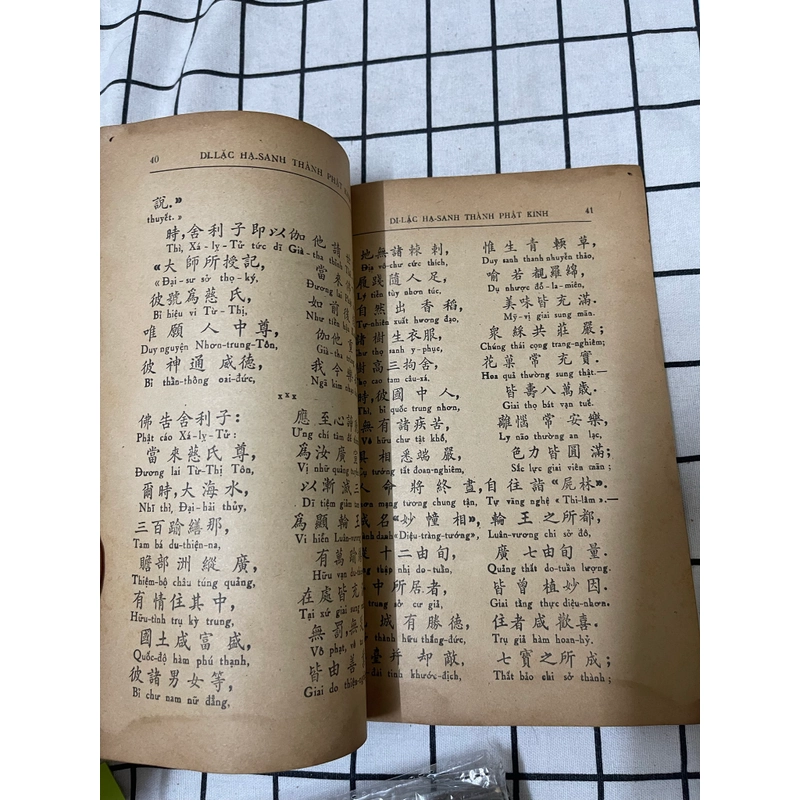 40 DI-LẶC HẠ-SANH THÀNH PHẬT
說.»
thuyết. »
時,舍利子即以伽他請
Thì, Xá-lỵ-Tử tức dĩ Già-tha thỉnh
«大師所授記, 當來
«Đại-sư sở thọ-ký, Đương lai
彼號為慈氏, 如前後
Bỉ hiệu vi Từ-Thị, Như tiền
唯願人中尊, 伽他
Duy nguyện Nhơn-trung-Tôn, Già-tha
彼神通威德, 我今
Bỉ thần-thông oai-đức, Ngã kim
xxx
佛告舍利子: 應至心
Phật cáo Xá-lỵ-Tử: Ưng chí tâm
當來慈氏尊, 為汝廣
Đương lai Từ-Thị Tôn, Vị nhữ quảng
爾時,大海水, 以漸減三
Nhĩ thì, Đại-hải thủy, Dĩ tiệm giảm
三百踰繕那, 為顯輪王
Tam bá du-thiện-na, Vi hiển Luân-vương
贍部洲縱廣, 有萬踰
Thiệm-bộ châu túng quảng, Hữu vạn du
有情住其中, 在處皆充
Hữu-tình trụ kỳ trung, Tại xứ giai sung
國土咸富盛, 無罰,無
Quốc-độ hàm phú thạnh, Vô phạt, vô
彼諸男女等, 皆由善
Bỉ chư nam nữ đẳng, Giai do thiện
DI-LẶC HẠ-SANH THÀNH PHẬT KINH 41
地無諸棘刺, 惟生青輭草,
Địa vô-chư cức thích, Duy sanh thanh nhuyễn thảo,
履踐隨人足, 喻若覩羅綿,
Lý tiễn tùy nhơn túc, Dụ nhược đổ-la-miên,
自然出香稻, 美味皆充滿.
Tự-nhiên xuất hương đạo, Mỹ-vị giai sung mãn.
諸樹生衣服, 眾綵共莊嚴;
Chư thọ sanh y-phục, Chúng thái cọng trang-nghiêm;
樹高三拘舍, 花菓常充實.
Thọ cao tam câu-xá, Hoa quả thường sung thật.—
時,彼國中人, 皆壽八萬歲.
Thì, bỉ quốc trung nhơn, Giai thọ bát vạn tuế.
無有諸疾苦, 離惱常安樂,
Vô hữu chư tật khổ, Ly não thường an lạc,
具相悉端嚴, 色力皆圓滿;
Cụ tướng tất đoan-nghiêm, Sắc lực giai viên mãn;
人命將終盡, 自往詣«屍林».
nhơn mạng tương chung tận, Tự vãng nghệ «Thi-lâm».—
城名«妙幢相», 輪王之所都,
danh «Diệu-tràng-tướng», Luân-vương chi sở đô,
十二由旬, 廣七由旬量.
thập nhị do-tuần, Quảng thất do-tuần lượng.
中所居者, 皆曾植妙因.
trung sở cư giả, Giai tằng thực diệu-nhơn.
城有勝德, 住者咸歡喜.
thành hữu thắng-đức, Trụ giả hàm hoan-hỷ.
臺并却敵, 七寶之所成;
đài tinh khước-địch, Thất bảo chi sở thành;